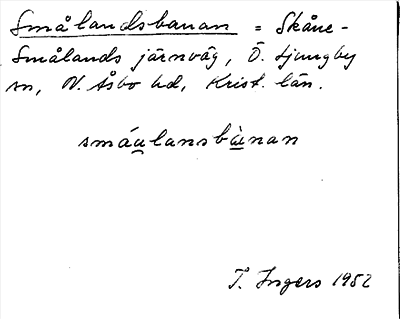 Smålandsbanan = Skåne-
Smålands järnväg, Ö. Ljungby
sn, N. Åsbo hd, Krist. län.
smáu̲lansbà̲nan
I. Ingers 1952